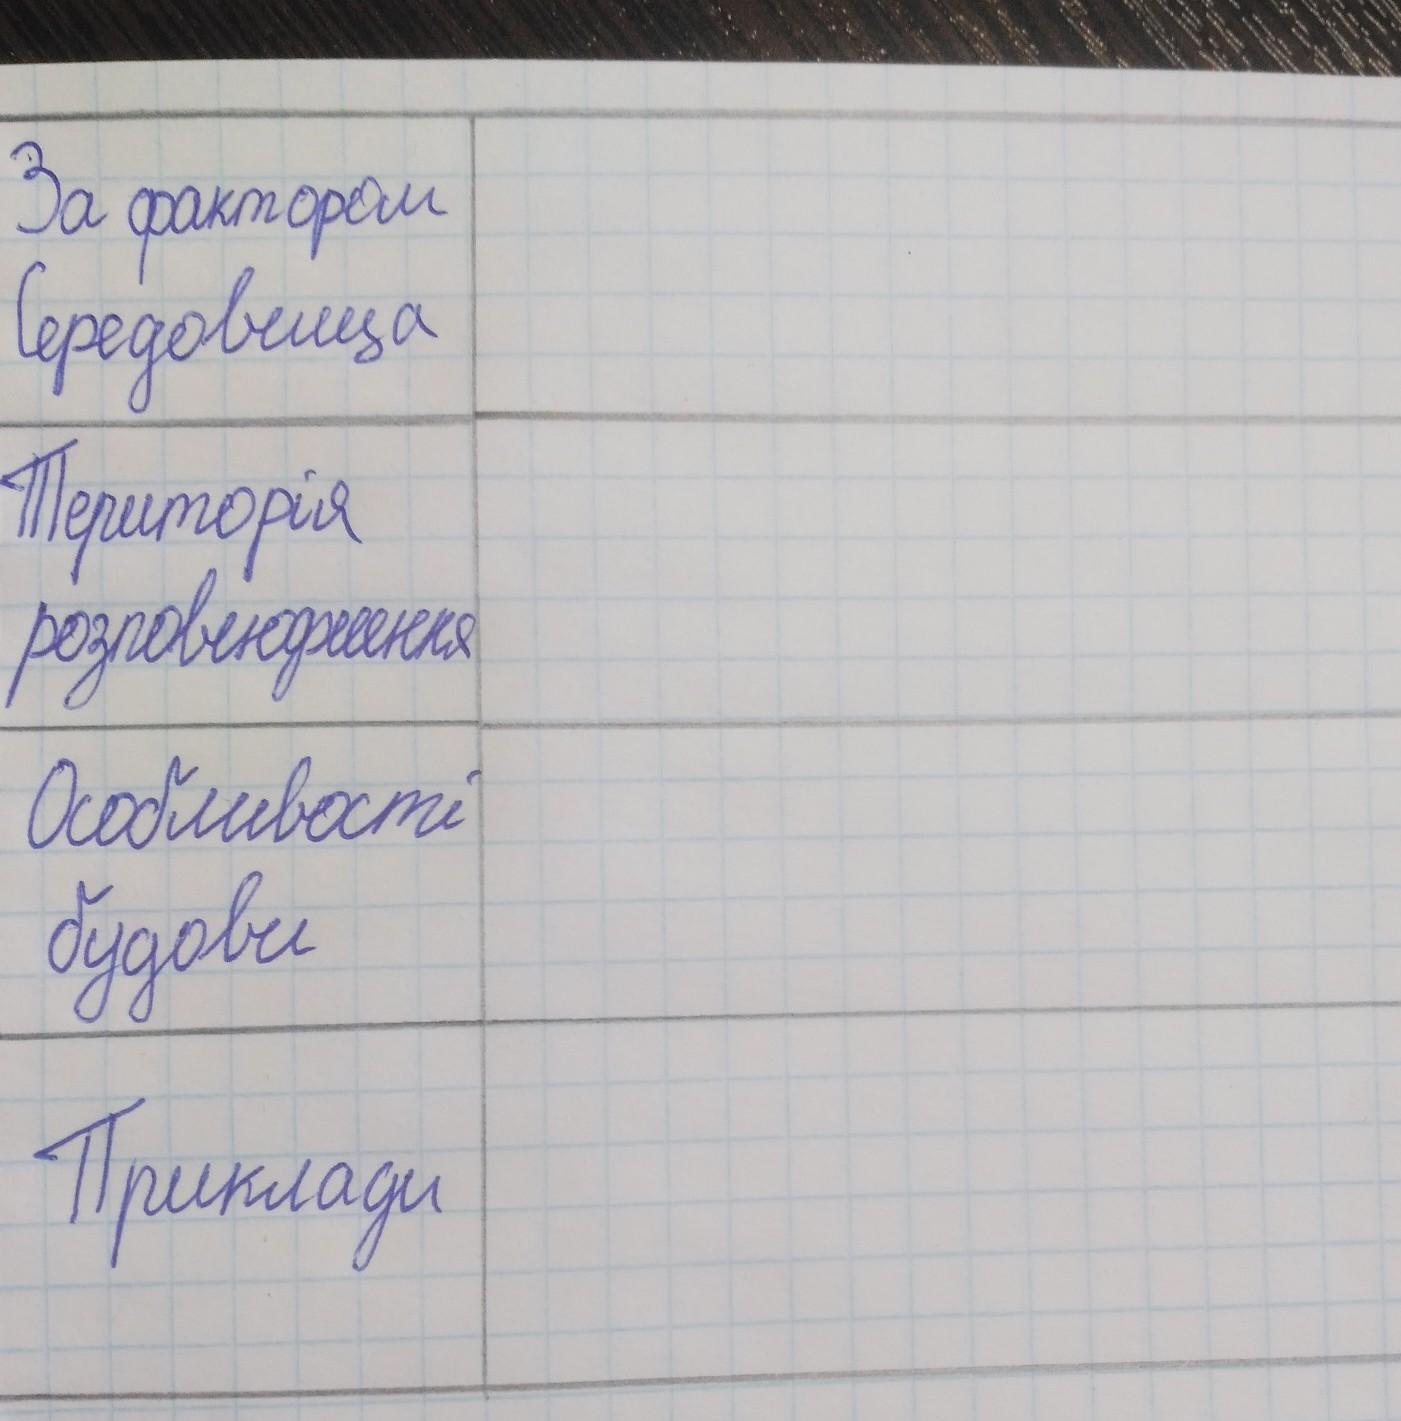 За фактором
Середовища
Територія
розповсюдження
Особливості
будови
Приклади